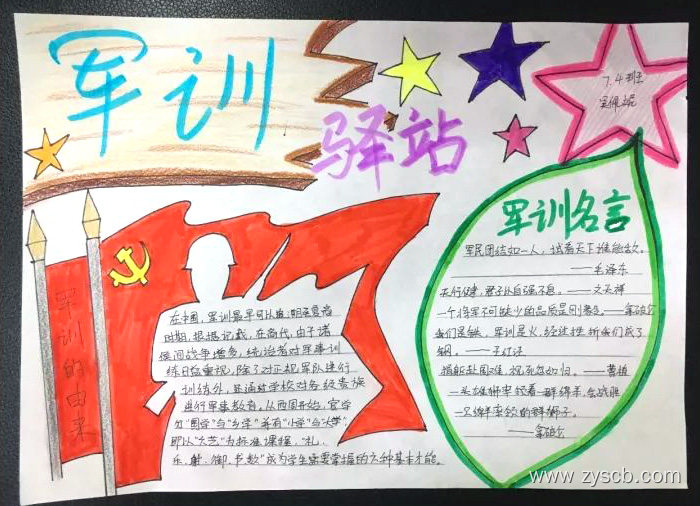 军训
驿站
7.4班
军训的由来
在中国,军训最早可以追溯至夏商
时期,根据记载,在商代,由于诸
侯间战争增多,统治者对军事训
练日益重视,除了对正规军队进行
训练外,还通过学校对各级贵族
进行军事教育。从西周开始,官学
分"国学"与"乡学"并有"小学"与"大学"
即以"六艺"为标准课程,"礼、
乐、射、御、书、数"成为学生需要掌握的六种基本才能。
军训名言
军民团结如一人,试看天下谁能敌。
——毛泽东
天行健,君子以自强不息。——文天祥
一个将军不可缺少的品质是刚勇。——拿破仑
我们是铁,军训是火,经过性 折我们成了
钢。
捐躯赴国难,视死忽如归。——曹植
一头雄狮率领着一群绵羊,会战胜
一只绵羊率领的群狮子。
——拿破仑
www.zyscb.com